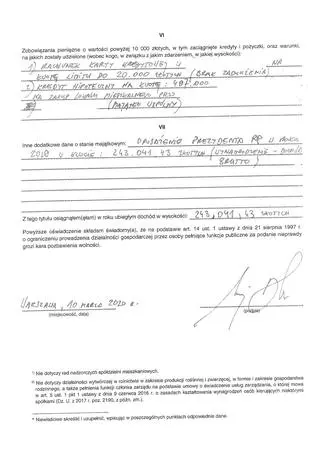 VI
Zobowiązania pieniężne o wartości powyżej 10 000 złotych, w tym zaciągnięte kredyty i pożyczki, oraz warunki,
na jakich zostały udzielone (wobec kogo, w związku z jakim zdarzeniem, w jakiej wysokości):
1) RACHUNEK KARTY KREDYTOWEJ U NA
KWOTĘ LIMITU DO 20.000 ZŁOTYCH (BRAK ZADŁUŻENIA)
2) KREDYT HIPOTECZNY NA KWOTĘ: 000
NA ZAKUP LOKALU MIESZKALNEGO
(MAJĄTEK WSPÓLNY)
VII
Inne dodatkowe dane o stanie majątkowym: PREZYDENTA RP W ROKU
W KWOCIE: 243.041,43 ZŁOTYCH (WYNAGRODZENIE -
BRUTTO)
Z tego tytułu osiągnąłem(ęłam) w roku ubiegłym dochód w wysokości: 243.041,43 ZŁOTYCH
Powyższe oświadczenie składam świadomy(a), iż na podstawie art. 14 ust. 1 ustawy z dnia 21 sierpnia 1997 r.
o ograniczeniu prowadzenia działalności gospodarczej przez osoby pełniące funkcje publiczne za podanie nieprawdy
grozi kara pozbawienia wolności.
WARSZAWA, 10 MARCA 2020 r.
(miejscowość, data) (podpis)
¹⁾ Nie dotyczy rad nadzorczych spółdzielni mieszkaniowych.
²⁾ Nie dotyczy działalności wytwórczej w rolnictwie w zakresie produkcji roślinnej i zwierzęcej, w formie i zakresie gospodarstwa
rodzinnego, a także pełnienia funkcji członka zarządu na podstawie umowy o świadczenie usług zarządzania, o której mowa
w art. 5 ust. 1 pkt 1 ustawy z dnia 9 czerwca 2016 r. o zasadach kształtowania wynagrodzeń osób kierujących niektórymi
spółkami (Dz. U. z 2017 r. poz. 2190, z późn. zm.).
³⁾ Niewłaściwe skreślić i uzupełnić, wpisując w poszczególnych punktach odpowiednie dane.